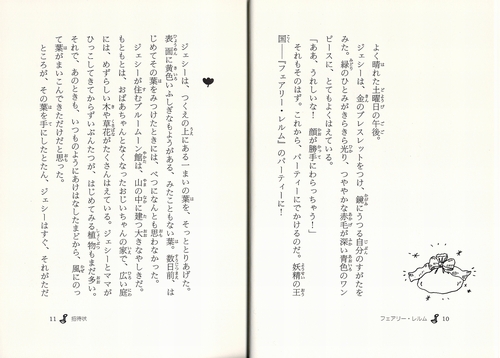 よく晴れた土曜日の午後。
ジェシーは、金のブレスレットをつけ、鏡にうつる自分のすがたを
みた。緑のひとみがきらきら光り、つややかな赤毛が深い青色のワン
ピースに、とてもよくはえている。
「ああ、うれしいな! 顔が勝手にわらっちゃう!」
それもそのはず。これから、パーティーにでかけるのだ。妖精の王
国――『フェアリー・レルム』のパーティーに!
フェアリー・レルム 10
ジェシーは、つくえの上にある一まいの葉を、そっととりあげた。
表面に黄色いふしぎなもようがある、みたこともない葉。数日前、は
じめてその葉をみつけたときには、べつになんとも思わなかった。
ジェシーが住むブルームーン館は、山の中に建つ大きなやしきだ。
もともとは、おばあちゃんとなくなったおじいちゃんの家で、広い庭
には、めずらしい木や草花がたくさんはえている。ジェシーとママが
ひっこしてきてからずいぶんたつが、はじめてみる植物もまだ多い。
それで、あのときも、いつものようにあけはなしたまどから、風にのっ
て葉がまいこんできただけだと思った。
ところが、その葉を手にしたとたん、ジェシーはすぐ、それがただ
11 招待状